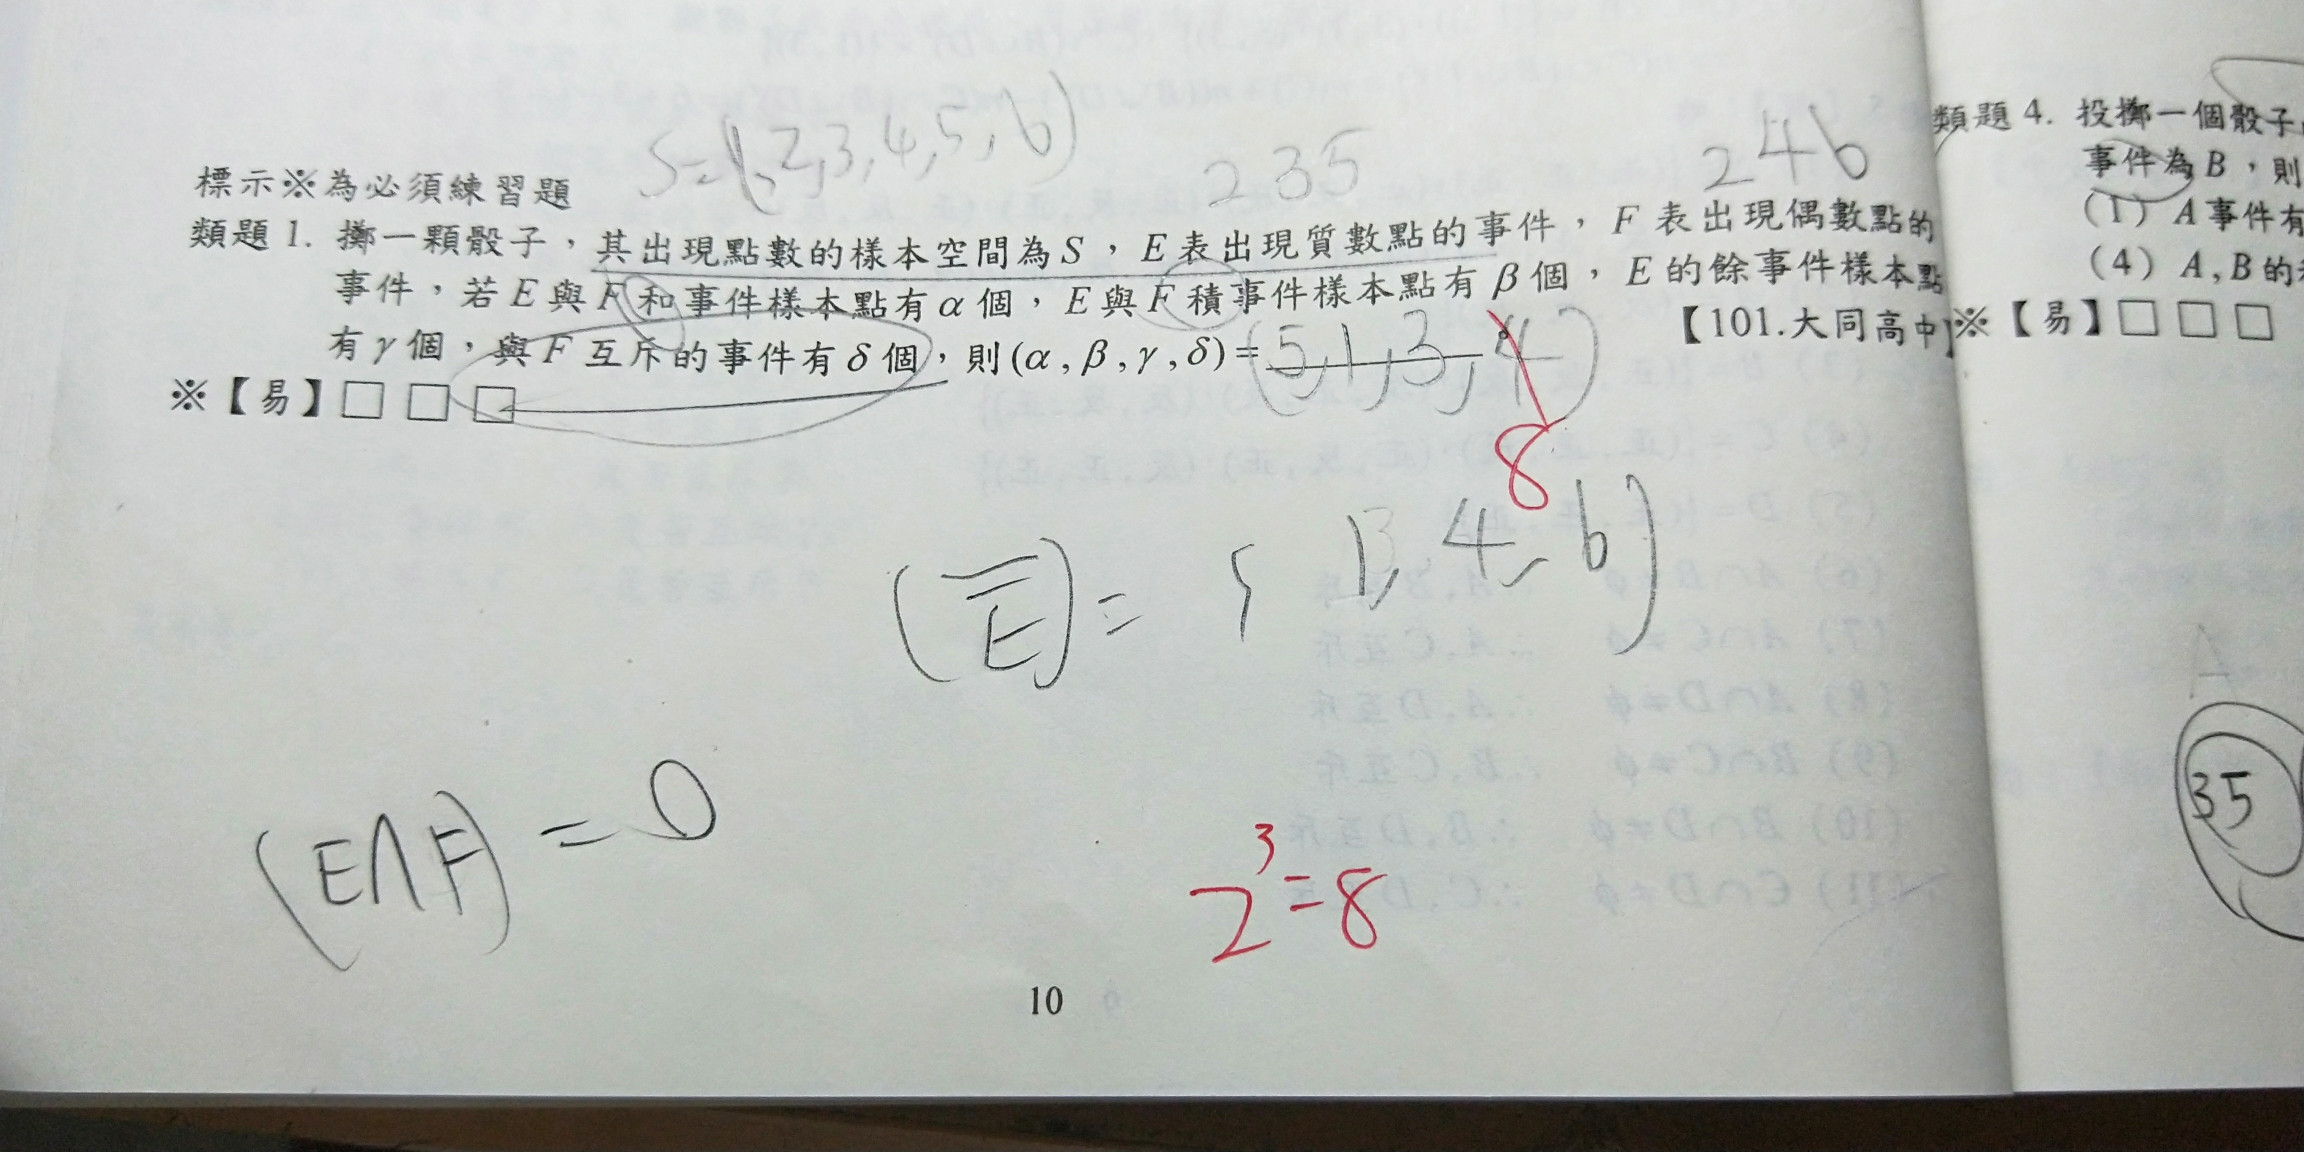 S={1,2,3,4,5,6}
235
246
標示※為必須練習題
類題1. 擲一顆骰子，其出現點數的樣本空間為S，E表出現質數點的事件，F表出現偶數點的
事件，若E與F和事件樣本點有α個，E與F積事件樣本點有β個，E的餘事件樣本點
有γ個，與F互斥的事件有δ個，則(α,β,γ,δ)=(5,1,3,4)。
【101.大同高中】
※【易】□ □ □
8
(E)={1,4,6}
(E∩F)=0
2³=8
10
類題4. 投擲一個骰子
事件為B，則
(1) A事件有
(4) A,B的
※【易】□ □ □
A
35